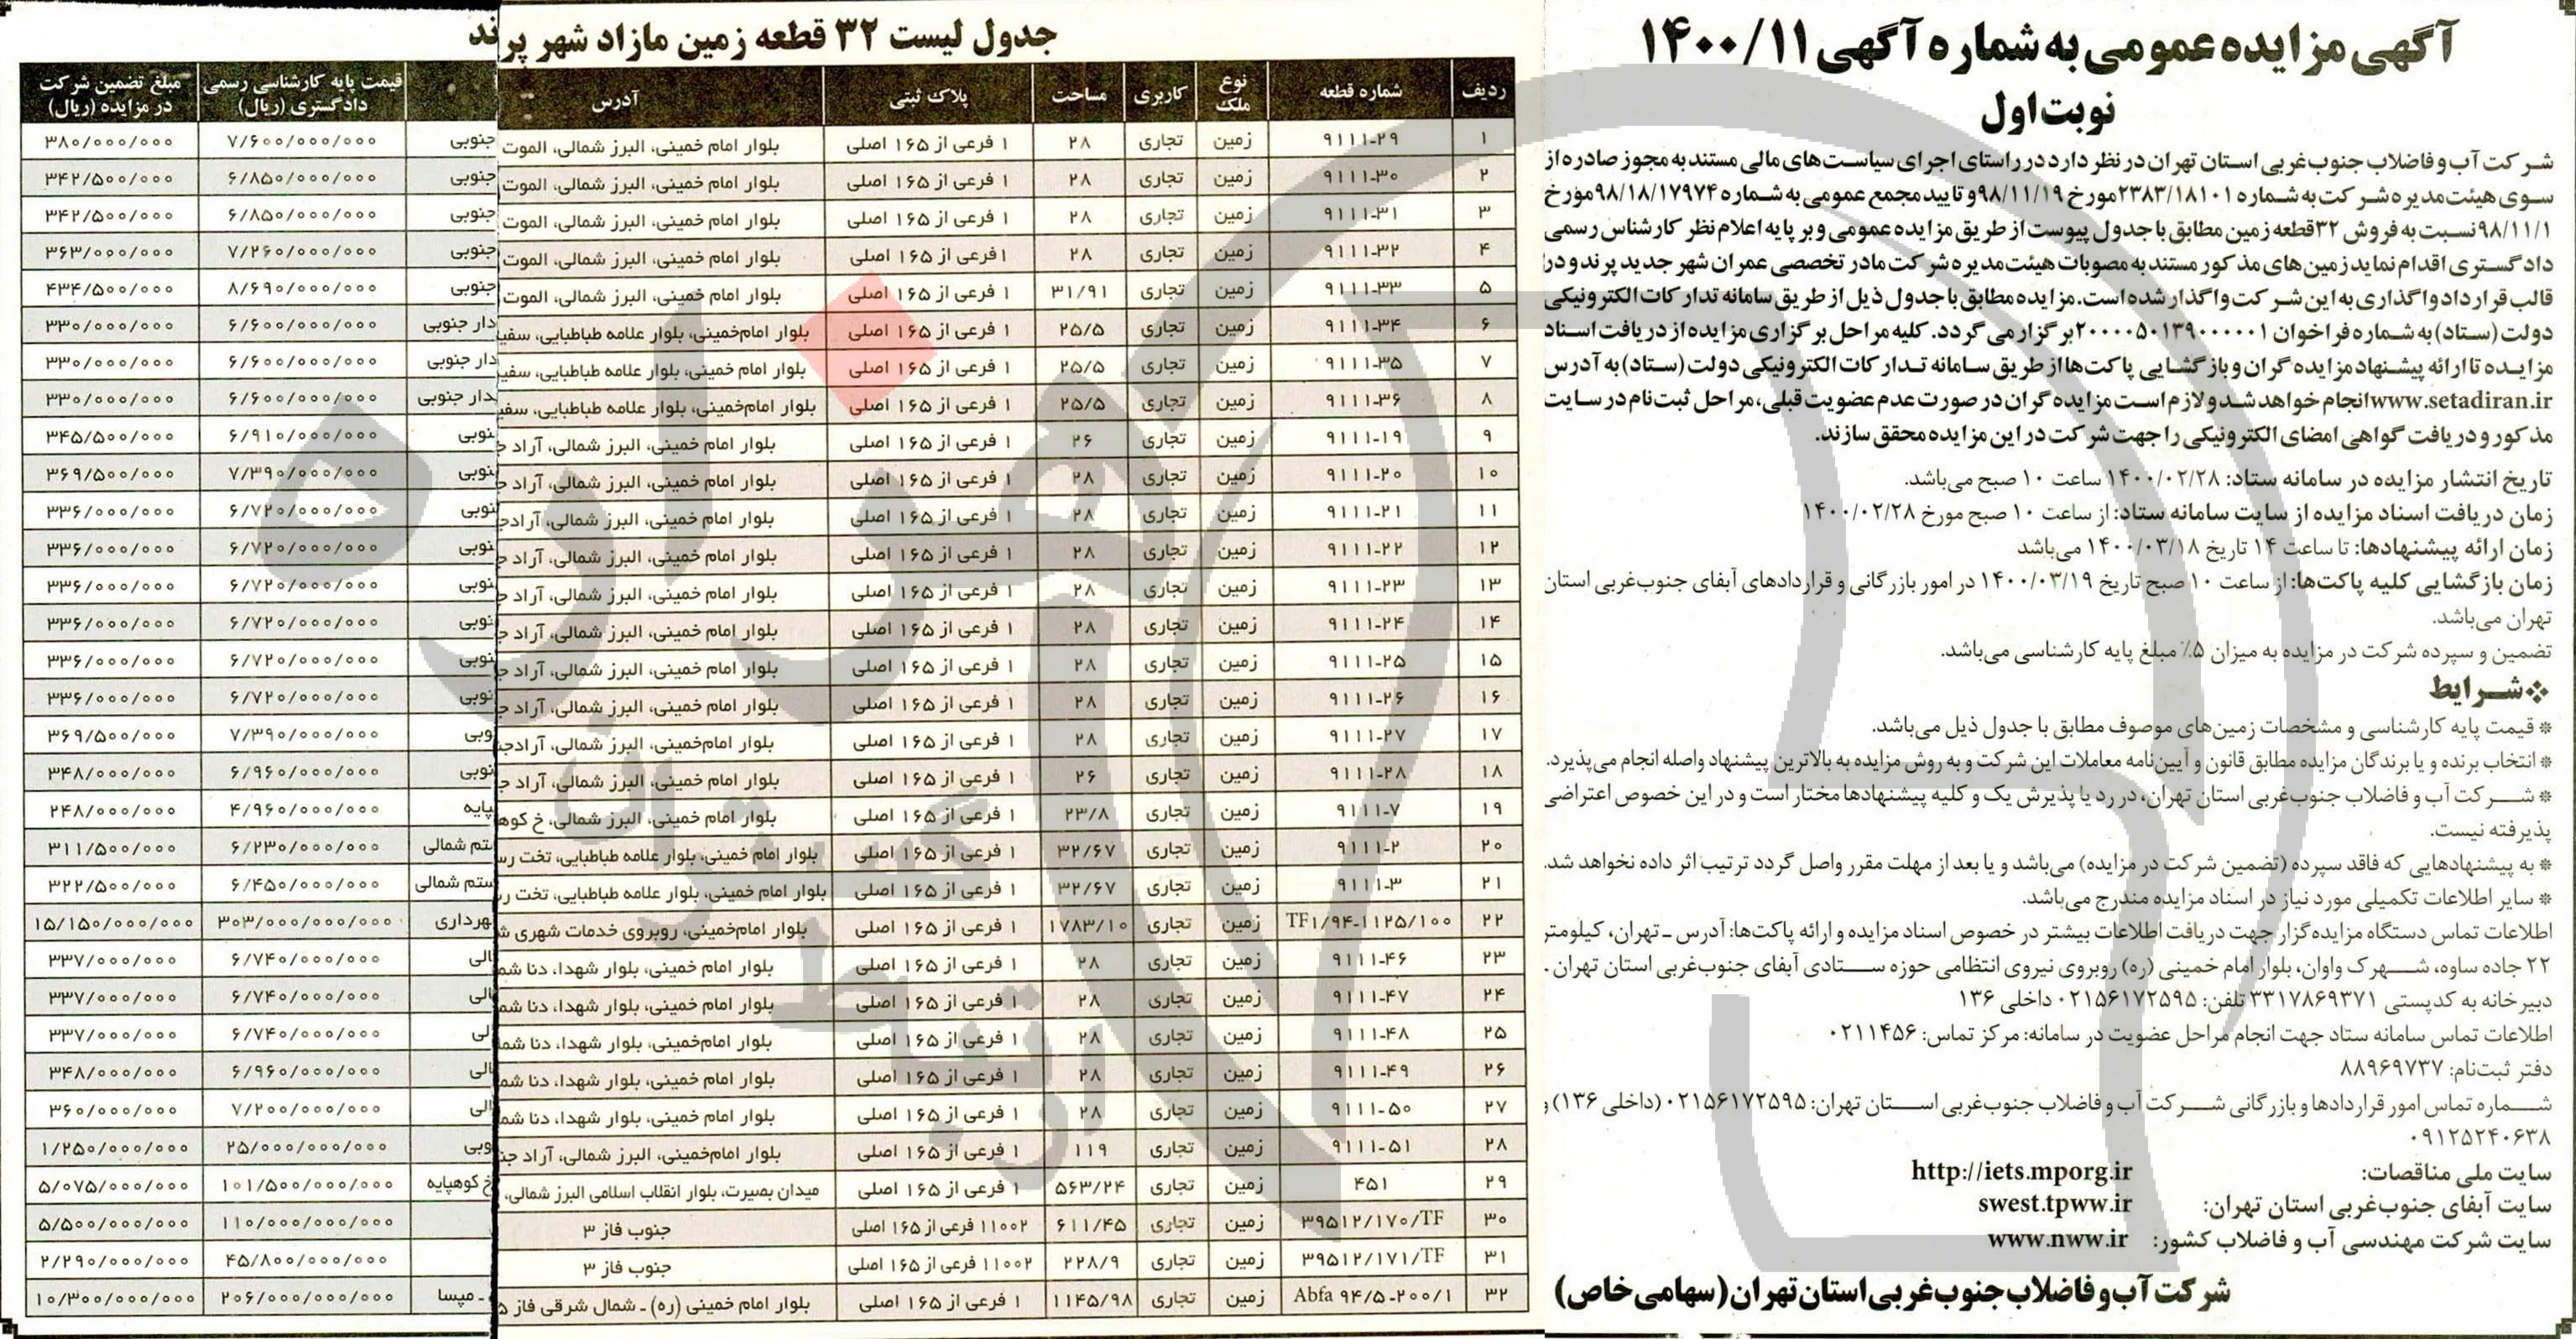 آگهی مزایده عمومی به شماره آگهی ۱۴۰۰/۱۱
نوبت اول
شرکت آب و فاضلاب جنوب‌غربی استان تهران در نظر دارد در راستای اجرای سیاست‌های مالی مستند به مجوز صادره از
سوی هیئت مدیره شرکت به شماره ۲۳۸۳/۱۸۱۰۱ مورخ ۹۸/۱۱/۱۹ و تایید مجمع عمومی به شماره ۹۸/۱۸/۱۷۹۷۴ مورخ
۹۸/۱۱/۱ نسبت به فروش ۳۲ قطعه زمین مطابق با جدول پیوست از طریق مزایده عمومی و بر پایه اعلام نظر کارشناس رسمی
دادگستری اقدام نماید زمین‌های مذکور مستند به مصوبات هیئت مدیره شرکت مادر تخصصی عمران شهر جدید پرند و در
قالب قرارداد واگذاری به این شرکت واگذار شده است. مزایده مطابق با جدول ذیل از طریق سامانه تدارکات الکترونیکی
دولت (ستاد) به شماره فراخوان ۲۰۰۰۰۵۰۱۳۹۰۰۰۰۰۱ برگزار می گردد. کلیه مراحل برگزاری مزایده از دریافت اسناد
مزایده تا ارائه پیشنهاد مزایده گران و بازگشایی پاکت‌ها از طریق سامانه تدارکات الکترونیکی دولت (ستاد) به آدرس
www.setadiran.ir انجام خواهد شد و لازم است مزایده گران در صورت عدم عضویت قبلی، مراحل ثبت نام در سایت
مذکور و دریافت گواهی امضای الکترونیکی را جهت شرکت در این مزایده محقق سازند.
تاریخ انتشار مزایده در سامانه ستاد: ۱۴۰۰/۰۲/۲۸ ساعت ۱۰ صبح می‌باشد.
زمان دریافت اسناد مزایده از سایت سامانه ستاد: از ساعت ۱۰ صبح مورخ ۱۴۰۰/۰۲/۲۸
زمان ارائه پیشنهادها: تا ساعت ۱۴ تاریخ ۱۴۰۰/۰۳/۱۸ می‌باشد
زمان بازگشایی کلیه پاکت‌ها: از ساعت ۱۰ صبح تاریخ ۱۴۰۰/۰۳/۱۹ در امور بازرگانی و قراردادهای آبفای جنوب‌غربی استان
تهران می‌باشد.
تضمین و سپرده شرکت در مزایده به میزان ۵٪ مبلغ پایه کارشناسی می‌باشد.
❖ شرایط
* قیمت پایه کارشناسی و مشخصات زمین‌های موصوف مطابق با جدول ذیل می‌باشد.
* انتخاب برنده و یا برندگان مزایده مطابق قانون و آیین‌نامه معاملات این شرکت و به روش مزایده به بالاترین پیشنهاد واصله انجام می‌پذیرد.
* شرکت آب و فاضلاب جنوب‌غربی استان تهران، در رد یا پذیرش یک و کلیه پیشنهادها مختار است و در این خصوص اعتراضی
پذیرفته نیست.
* به پیشنهادهایی که فاقد سپرده (تضمین شرکت در مزایده) می‌باشد و یا بعد از مهلت مقرر واصل گردد ترتیب اثر داده نخواهد شد.
* سایر اطلاعات تکمیلی مورد نیاز در اسناد مزایده مندرج می‌باشد.
اطلاعات تماس دستگاه مزایده‌گزار جهت دریافت اطلاعات بیشتر در خصوص اسناد مزایده و ارائه پاکت‌ها: آدرس ـ تهران، کیلومتر
۲۲ جاده ساوه، شهرک واوان، بلوار امام خمینی (ره) روبروی نیروی انتظامی حوزه ستادی آبفای جنوب‌غربی استان تهران ـ
دبیرخانه به کدپستی ۳۳۱۷۸۶۹۳۷۱ تلفن: ۰۲۱۵۶۱۷۲۵۹۵ داخلی ۱۳۶
اطلاعات تماس سامانه ستاد جهت انجام مراحل عضویت در سامانه: مرکز تماس: ۰۲۱۱۴۵۶
دفتر ثبت‌نام: ۸۸۹۶۹۷۳۷
شماره تماس امور قراردادها و بازرگانی شرکت آب و فاضلاب جنوب‌غربی استان تهران: ۰۲۱۵۶۱۷۲۵۹۵ (داخلی ۱۳۶) و
۰۹۱۲۵۲۴۰۶۳۸
سایت ملی مناقصات: http://iets.mporg.ir
سایت آبفای جنوب‌غربی استان تهران: swest.tpww.ir
سایت شرکت مهندسی آب و فاضلاب کشور: www.nww.ir
شرکت آب و فاضلاب جنوب غربی استان تهران (سهامی خاص)
جدول لیست ۳۲ قطعه زمین مازاد شهر پرند
ردیف شماره قطعه نوع ملک کاربری مساحت پلاک ثبتی آدرس قیمت پایه کارشناسی رسمی دادگستری (ریال) مبلغ تضمین شرکت در مزایده (ریال)
۱ ۹۱۱۱-۲۹ زمین تجاری ۲۸ ۱ فرعی از ۱۶۵ اصلی بلوار امام خمینی، البرز شمالی، الموت جنوبی ۷/۶۰۰/۰۰۰/۰۰۰ ۳۸۰/۰۰۰/۰۰۰
۲ ۹۱۱۱-۳۰ زمین تجاری ۲۸ ۱ فرعی از ۱۶۵ اصلی بلوار امام خمینی، البرز شمالی، الموت جنوبی ۶/۸۵۰/۰۰۰/۰۰۰ ۳۴۲/۵۰۰/۰۰۰
۳ ۹۱۱۱-۳۱ زمین تجاری ۲۸ ۱ فرعی از ۱۶۵ اصلی بلوار امام خمینی، البرز شمالی، الموت جنوبی ۶/۸۵۰/۰۰۰/۰۰۰ ۳۴۲/۵۰۰/۰۰۰
۴ ۹۱۱۱-۳۲ زمین تجاری ۲۸ ۱ فرعی از ۱۶۵ اصلی بلوار امام خمینی، البرز شمالی، الموت جنوبی ۷/۲۶۰/۰۰۰/۰۰۰ ۳۶۳/۰۰۰/۰۰۰
۵ ۹۱۱۱-۳۳ زمین تجاری ۳۱/۹۱ ۱ فرعی از ۱۶۵ اصلی بلوار امام خمینی، البرز شمالی، الموت جنوبی ۸/۶۹۰/۰۰۰/۰۰۰ ۴۳۴/۵۰۰/۰۰۰
۶ ۹۱۱۱-۳۴ زمین تجاری ۲۵/۵ ۱ فرعی از ۱۶۵ اصلی بلوار امام‌خمینی، بلوار علامه طباطبایی، سفیدار جنوبی ۶/۶۰۰/۰۰۰/۰۰۰ ۳۳۰/۰۰۰/۰۰۰
۷ ۹۱۱۱-۳۵ زمین تجاری ۲۵/۵ ۱ فرعی از ۱۶۵ اصلی بلوار امام خمینی، بلوار علامه طباطبایی، سفیدار جنوبی ۶/۶۰۰/۰۰۰/۰۰۰ ۳۳۰/۰۰۰/۰۰۰
۸ ۹۱۱۱-۳۶ زمین تجاری ۲۵/۵ ۱ فرعی از ۱۶۵ اصلی بلوار امام‌خمینی، بلوار علامه طباطبایی، سفیدار جنوبی ۶/۶۰۰/۰۰۰/۰۰۰ ۳۳۰/۰۰۰/۰۰۰
۹ ۹۱۱۱-۱۹ زمین تجاری ۲۶ ۱ فرعی از ۱۶۵ اصلی بلوار امام خمینی، البرز شمالی، آراد جنوبی ۶/۹۱۰/۰۰۰/۰۰۰ ۳۴۵/۵۰۰/۰۰۰
۱۰ ۹۱۱۱-۲۰ زمین تجاری ۲۸ ۱ فرعی از ۱۶۵ اصلی بلوار امام خمینی، البرز شمالی، آراد جنوبی ۷/۳۹۰/۰۰۰/۰۰۰ ۳۶۹/۵۰۰/۰۰۰
۱۱ ۹۱۱۱-۲۱ زمین تجاری ۲۸ ۱ فرعی از ۱۶۵ اصلی بلوار امام خمینی، البرز شمالی، آرادجنوبی ۶/۷۲۰/۰۰۰/۰۰۰ ۳۳۶/۰۰۰/۰۰۰
۱۲ ۹۱۱۱-۲۲ زمین تجاری ۲۸ ۱ فرعی از ۱۶۵ اصلی بلوار امام خمینی، البرز شمالی، آراد جنوبی ۶/۷۲۰/۰۰۰/۰۰۰ ۳۳۶/۰۰۰/۰۰۰
۱۳ ۹۱۱۱-۲۳ زمین تجاری ۲۸ ۱ فرعی از ۱۶۵ اصلی بلوار امام خمینی، البرز شمالی، آراد جنوبی ۶/۷۲۰/۰۰۰/۰۰۰ ۳۳۶/۰۰۰/۰۰۰
۱۴ ۹۱۱۱-۲۴ زمین تجاری ۲۸ ۱ فرعی از ۱۶۵ اصلی بلوار امام خمینی، البرز شمالی، آراد جنوبی ۶/۷۲۰/۰۰۰/۰۰۰ ۳۳۶/۰۰۰/۰۰۰
۱۵ ۹۱۱۱-۲۵ زمین تجاری ۲۸ ۱ فرعی از ۱۶۵ اصلی بلوار امام خمینی، البرز شمالی، آراد جنوبی ۶/۷۲۰/۰۰۰/۰۰۰ ۳۳۶/۰۰۰/۰۰۰
۱۶ ۹۱۱۱-۲۶ زمین تجاری ۲۸ ۱ فرعی از ۱۶۵ اصلی بلوار امام خمینی، البرز شمالی، آراد جنوبی ۶/۷۲۰/۰۰۰/۰۰۰ ۳۳۶/۰۰۰/۰۰۰
۱۷ ۹۱۱۱-۲۷ زمین تجاری ۲۸ ۱ فرعی از ۱۶۵ اصلی بلوار امام‌خمینی، البرز شمالی، آرادجنوبی ۷/۳۹۰/۰۰۰/۰۰۰ ۳۶۹/۵۰۰/۰۰۰
۱۸ ۹۱۱۱-۲۸ زمین تجاری ۲۶ ۱ فرعی از ۱۶۵ اصلی بلوار امام خمینی، البرز شمالی، آراد جنوبی ۶/۹۶۰/۰۰۰/۰۰۰ ۳۴۸/۰۰۰/۰۰۰
۱۹ ۹۱۱۱-۷ زمین تجاری ۲۳/۸ ۱ فرعی از ۱۶۵ اصلی بلوار امام خمینی، البرز شمالی، خ کوهپایه ۴/۹۶۰/۰۰۰/۰۰۰ ۲۴۸/۰۰۰/۰۰۰
۲۰ ۹۱۱۱-۲ زمین تجاری ۳۲/۶۷ ۱ فرعی از ۱۶۵ اصلی بلوار امام خمینی، بلوار علامه طباطبایی، تخت رستم شمالی ۶/۲۳۰/۰۰۰/۰۰۰ ۳۱۱/۵۰۰/۰۰۰
۲۱ ۹۱۱۱-۳ زمین تجاری ۳۲/۶۷ ۱ فرعی از ۱۶۵ اصلی بلوار امام خمینی، بلوار علامه طباطبایی، تخت رستم شمالی ۶/۴۵۰/۰۰۰/۰۰۰ ۳۲۲/۵۰۰/۰۰۰
۲۲ TF۱/۹۴-۱۱۲۵/۱۰۰ زمین تجاری ۱۷۸۳/۱۰ ۱ فرعی از ۱۶۵ اصلی بلوار امام‌خمینی، روبروی خدمات شهری شهرداری ۳۰۳/۰۰۰/۰۰۰/۰۰۰ ۱۵/۱۵۰/۰۰۰/۰۰۰
۲۳ ۹۱۱۱-۴۶ زمین تجاری ۲۸ ۱ فرعی از ۱۶۵ اصلی بلوار امام خمینی، بلوار شهدا، دنا شمالی ۶/۷۴۰/۰۰۰/۰۰۰ ۳۳۷/۰۰۰/۰۰۰
۲۴ ۹۱۱۱-۴۷ زمین تجاری ۲۸ ۱ فرعی از ۱۶۵ اصلی بلوار امام خمینی، بلوار شهدا، دنا شمالی ۶/۷۴۰/۰۰۰/۰۰۰ ۳۳۷/۰۰۰/۰۰۰
۲۵ ۹۱۱۱-۴۸ زمین تجاری ۲۸ ۱ فرعی از ۱۶۵ اصلی بلوار امام‌خمینی، بلوار شهدا، دنا شمالی ۶/۷۴۰/۰۰۰/۰۰۰ ۳۳۷/۰۰۰/۰۰۰
۲۶ ۹۱۱۱-۴۹ زمین تجاری ۲۸ ۱ فرعی از ۱۶۵ اصلی بلوار امام خمینی، بلوار شهدا، دنا شمالی ۶/۹۶۰/۰۰۰/۰۰۰ ۳۴۸/۰۰۰/۰۰۰
۲۷ ۹۱۱۱-۵۰ زمین تجاری ۲۸ ۱ فرعی از ۱۶۵ اصلی بلوار امام خمینی، بلوار شهدا، دنا شمالی ۷/۲۰۰/۰۰۰/۰۰۰ ۳۶۰/۰۰۰/۰۰۰
۲۸ ۹۱۱۱-۵۱ زمین تجاری ۱۱۹ ۱ فرعی از ۱۶۵ اصلی بلوار امام‌خمینی، البرز شمالی، آراد جنوبی ۲۵/۰۰۰/۰۰۰/۰۰۰ ۱/۲۵۰/۰۰۰/۰۰۰
۲۹ ۴۵۱ زمین تجاری ۵۶۳/۲۴ ۱ فرعی از ۱۶۵ اصلی میدان بصیرت، بلوار انقلاب اسلامی البرز شمالی، خ کوهپایه ۱۰۱/۵۰۰/۰۰۰/۰۰۰ ۵/۰۷۵/۰۰۰/۰۰۰
۳۰ ۳۹۵۱۲/۱۷۰/TF زمین تجاری ۶۱۱/۴۵ ۱۱۰۰۲ فرعی از ۱۶۵ اصلی جنوب فاز ۳ ۱۱۰/۰۰۰/۰۰۰/۰۰۰ ۵/۵۰۰/۰۰۰/۰۰۰
۳۱ ۳۹۵۱۲/۱۷۱/TF زمین تجاری ۲۲۸/۹ ۱۱۰۰۲ فرعی از ۱۶۵ اصلی جنوب فاز ۳ ۴۵/۸۰۰/۰۰۰/۰۰۰ ۲/۲۹۰/۰۰۰/۰۰۰
۳۲ Abfa ۹۴/۵-۲۰۰/۱ زمین تجاری ۱۱۴۵/۹۸ ۱ فرعی از ۱۶۵ اصلی بلوار امام خمینی (ره) ـ شمال شرقی فاز ۵ ـ مپسا ۲۰۶/۰۰۰/۰۰۰/۰۰۰ ۱۰/۳۰۰/۰۰۰/۰۰۰
هزاره
گستران
ارتباط